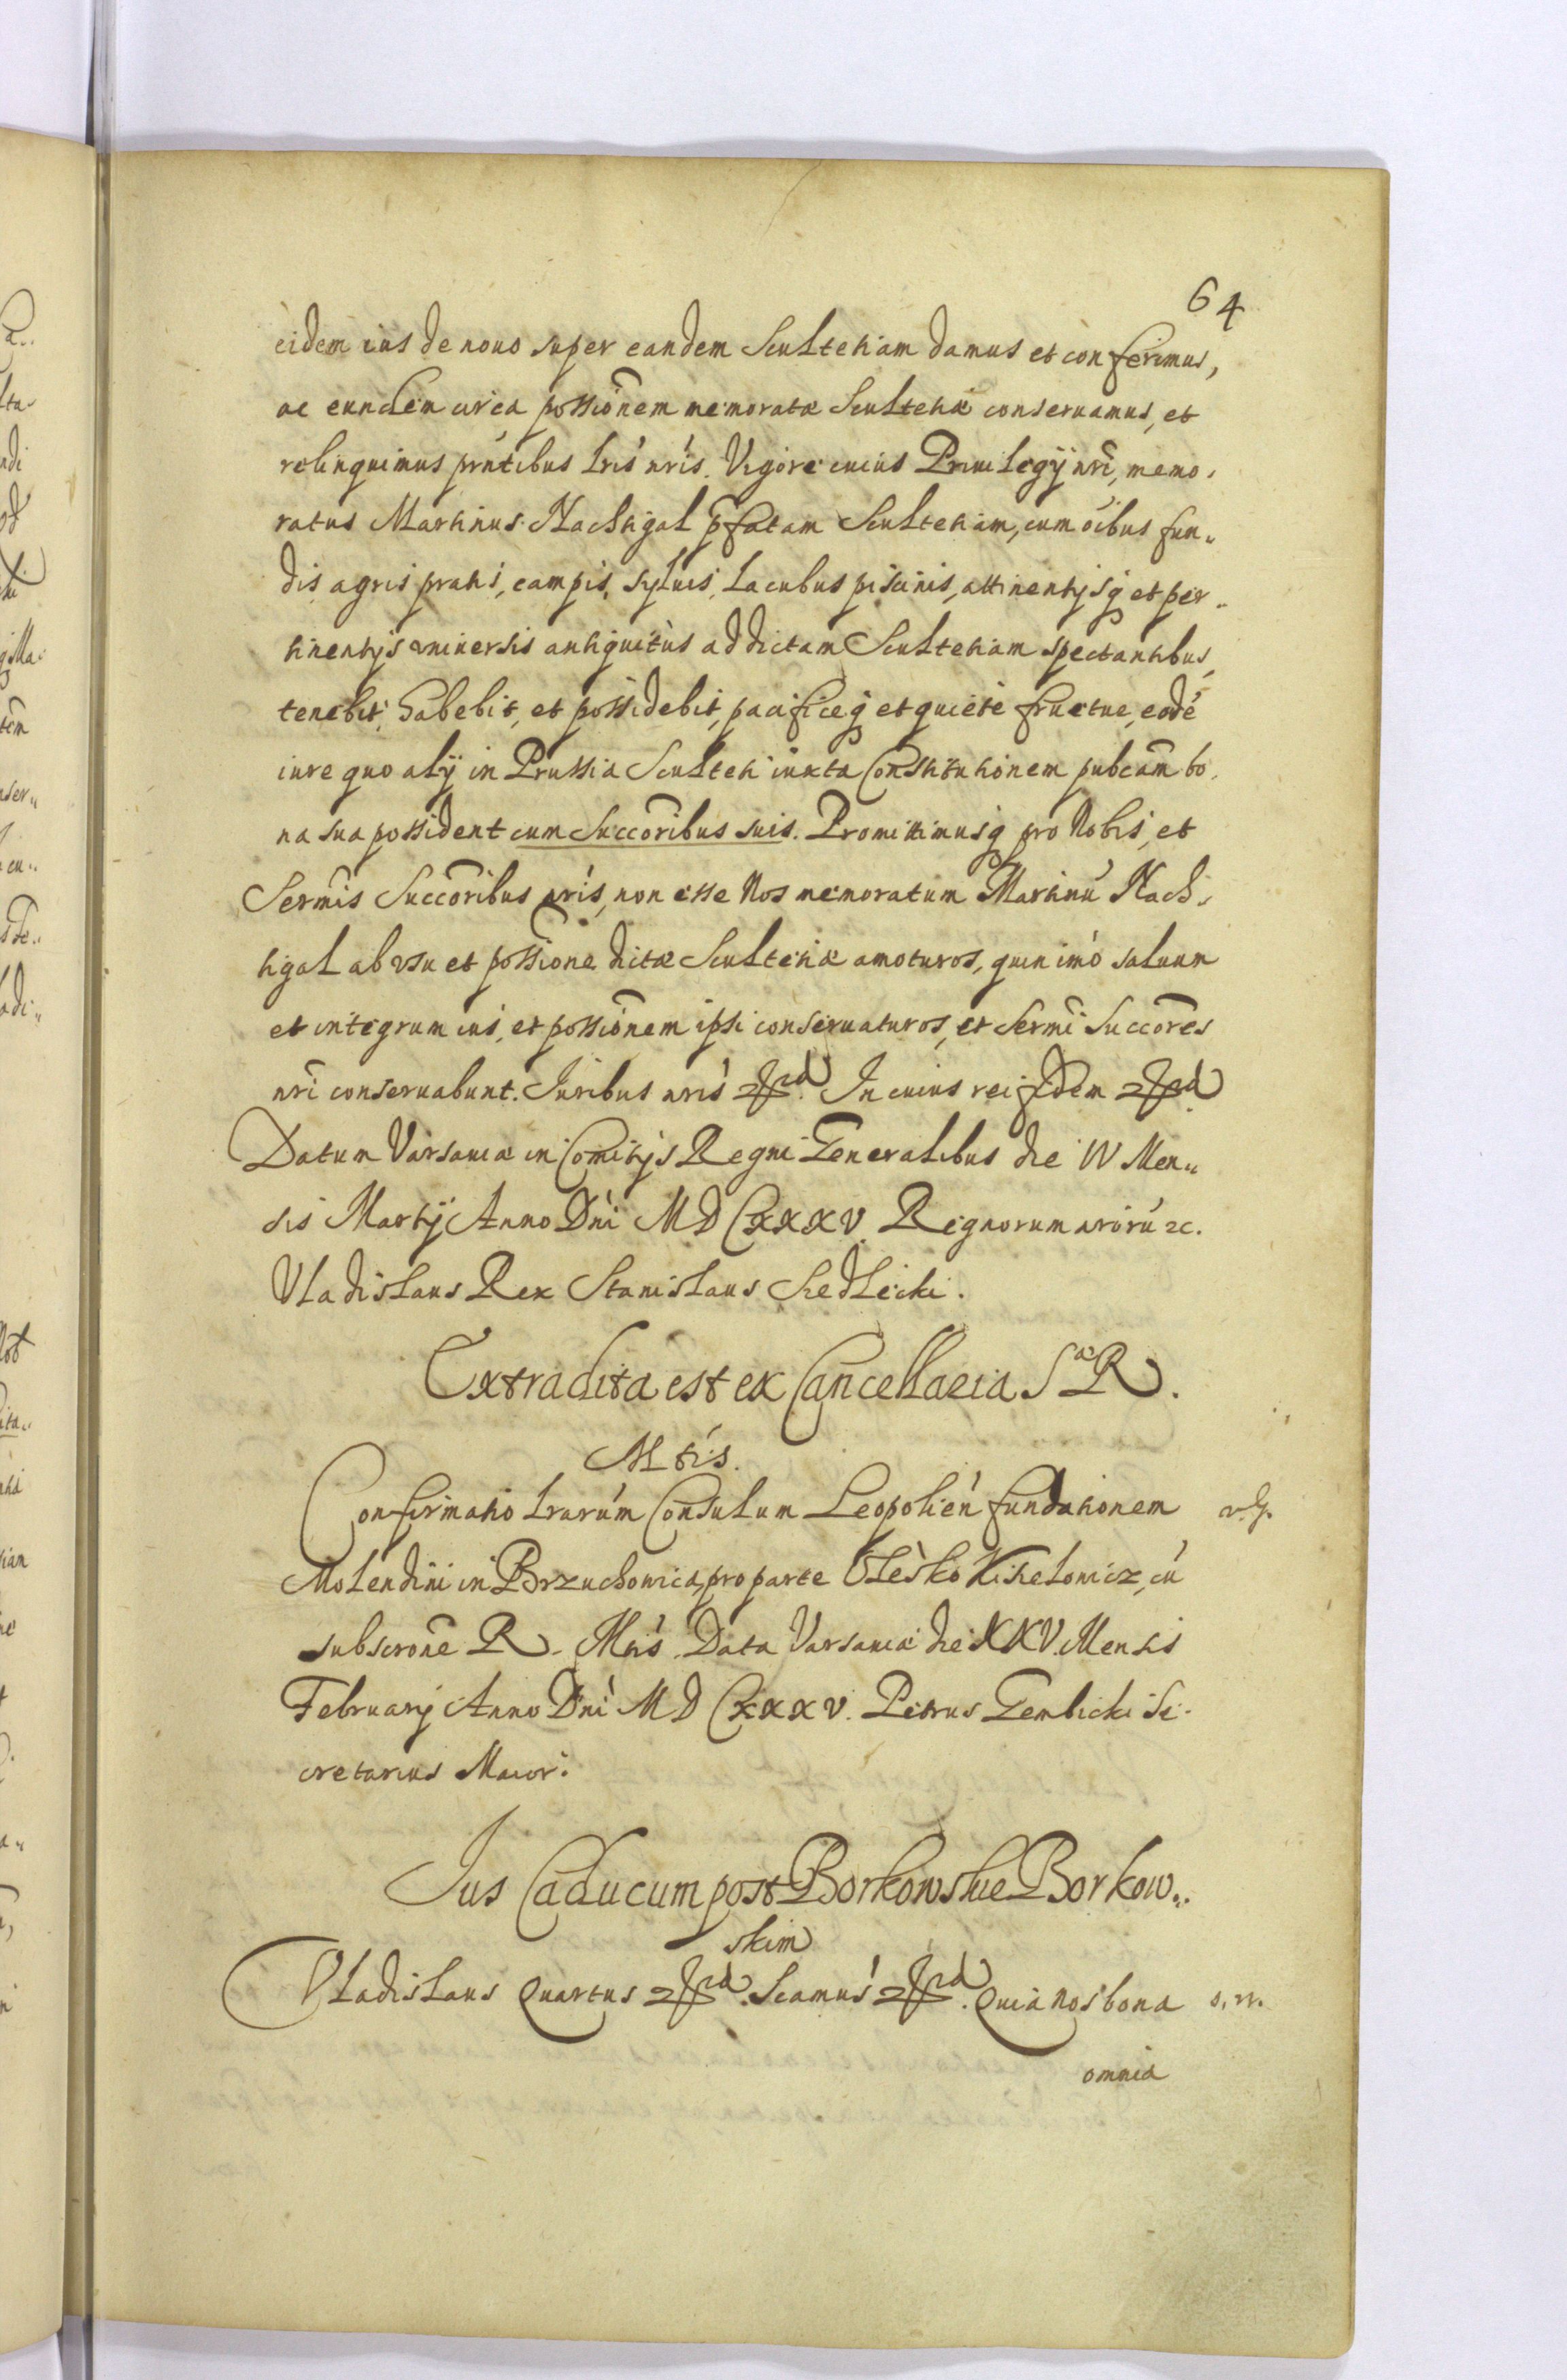 64
eidem ius de nouo super eandem Scultetiam damus et conferimus,
ac eundem circa possionem memoratæ Scultetiæ conseruamus, et
relinquimus pntibus Lris nris. Vigore cuius Priuilegij nri, memo-
ratus Martinus Nachtigal pfatam Scultetiam, cum oibus fun-
dis agris pratis, campis, syluis, Lacubus piscinis, attinentijsq et per-
tinentijs vniuersis antiquitùs ad dictam Scultetiam spectantibus,
tenebit, habebit, et possidebit, pacificeq et quiete fruetur, eodé
iure quo alij in Prussia Sculteti iuxta Constitutionem pubcam bo-
na sua possident cum Succoribus suis. Promittimusq pro Nobis, et
Sermis Succoribus nris, non esse Nos memoratum Martinú Nach-
tigal ab vsu et possione dictæ Scultetiæ amoturos, quin imò saluum
et integrum ius, et possionem ipsi conseruaturos, et Sermi Succores
nri conseruabunt. Iuribus nris In cuius rei fidem
Datum Varsauiæ in Comitijs Regni Generalibus die IV Men-
sis Martij Anno Dni MDCXXXV. Regnorum nrorú 2c.
Vladislaus Rex Stanislaus Siedlecki.
Extradita est ex Cancellaria Sæ R.
Mtis.
Confirmatio Lrarum Consulum Leopolien fundationem
Molendini in Brzuchowice, pro parte Olesko Kisielowicz, cú
subscrone R. Mtis. Data Varsauiæ die XXV. Mensis
Februarij Anno Dni MDCXXXV. Petrus Gembicki Se-
cretarius Maior.
Ius Caducum post Borkowskie Borkow-
skim
Vladislaus Quartus Scamus Quia Nos bona
omnia